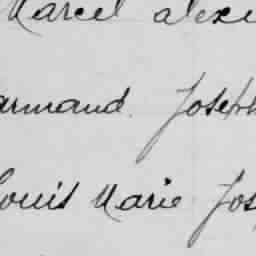 Marcel alexi
armand. Joseph
Louis Marie Jos